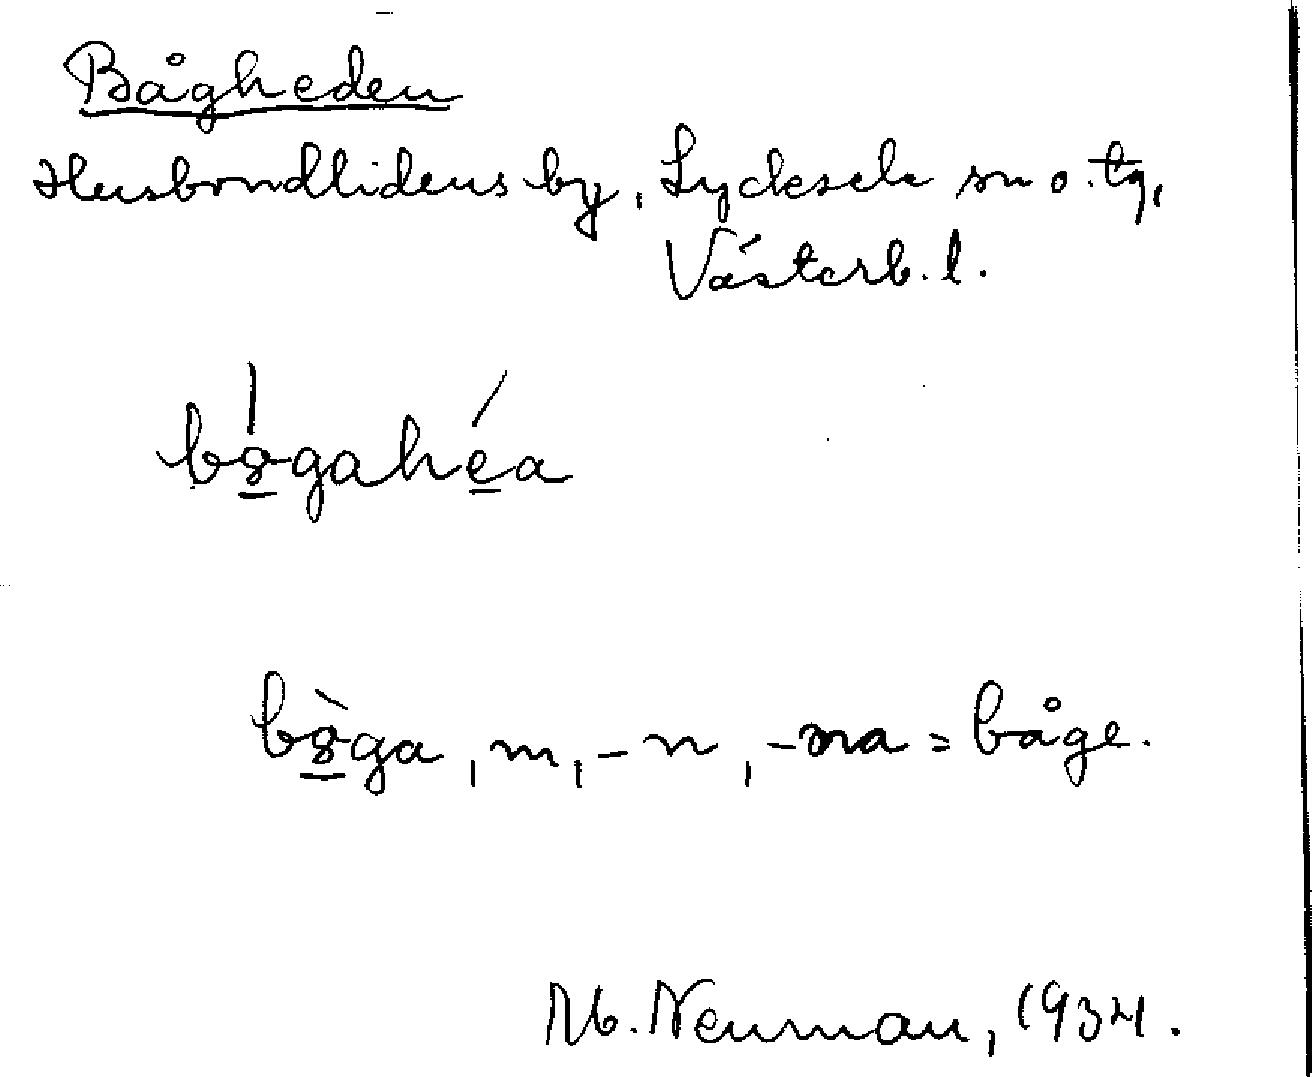 Bågheden
Husbondlidens by, Lycksele sn o. tg,
Västerb. l.
bo̱gahe̱a
bò̱ga, m, -n, -na = båge.
M. Neuman, 1934.